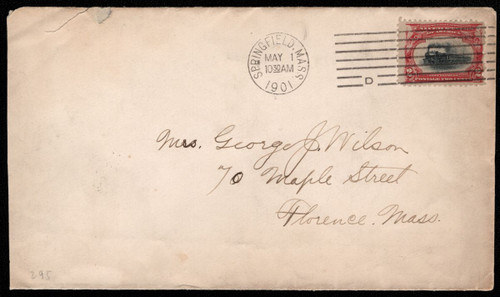 SPRINGFIELD, MASS.
MAY 1
1030AM
1901
D
Mrs. George J. Wilson
70 Maple Street
Florence. Mass.
295